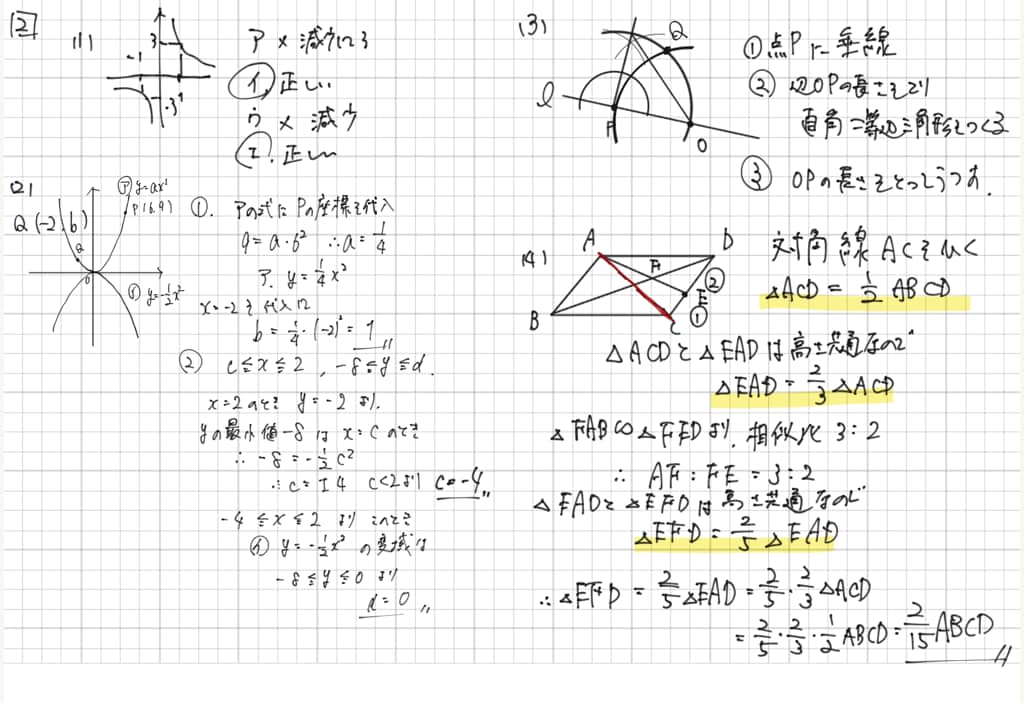 2
(1)
3
-1
1
-3
ア × 減少する
イ. 正しい
ウ × 減少
エ. 正しい
(2)
㋐ y=ax²
P(6,9)
Q(-2, b)
Q
0
㋑ y=-1/2x²
①. アの式にPの座標を代入
9=a・6² ∴a=1/4
ア. y=1/4x²
x=-2を代入に
b=1/4・(-2)²=1
② c≦x≦2, -8≦y≦d.
x=2のとき y=-2 より.
yの最小値-8は x=cのとき
∴ -8=-1/2c²
∴c=±4 c<2より c=-4
-4≦x≦2 より このとき
㋑ y=-1/2x² の変域は
-8≦y≦0 より
d=0
(3)
Q
ℓ
P
O
①点Pに垂線
② 辺OPの長さをとり
直角二等辺三角形をつくる
③ OPの長さをとってうつす.
(4)
A
D
F
E
B
C
②
①
対角線ACをひく
△ACD=1/2 ABCD
△ACDと△EADは高さ共通なので
△EAD=2/3△ACD
△FAB∽△FEDより, 相似比 3:2
∴ AF:FE=3:2
△EADと△EFDは高さ共通なので
△EFD=2/5△EAD
∴△EFD=2/5△EAD=2/5・2/3△ACD
=2/5・2/3・1/2ABCD=2/15ABCD